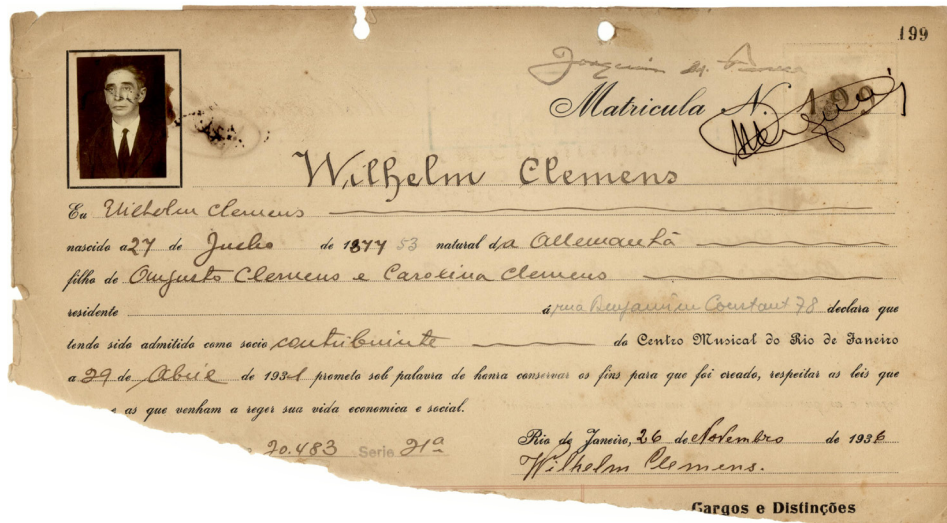 199
Joaquim
Matricula N. 199
Wilhelm Clemens
Eu Wilhelm Clemens
nascido a 27 de Junho de 1877 53 natural da Allemanhã
filho de Augusto Clemens e Carolina Clemens
residente á rua Benjamim Constant 78 declara que
tendo sido admitido como socio contribuinte do Centro Musical do Rio de Janeiro
a 29 de Abril de 1931 prometo sob palavra de honra conservar os fins para que foi creado, respeitar as leis que
e as que venham a reger sua vida economica e social.
Rio de Janeiro, 26 de Novembro de 1936
20.483 Serie 21ª
Wilhelm Clemens.
Cargos e Distinções